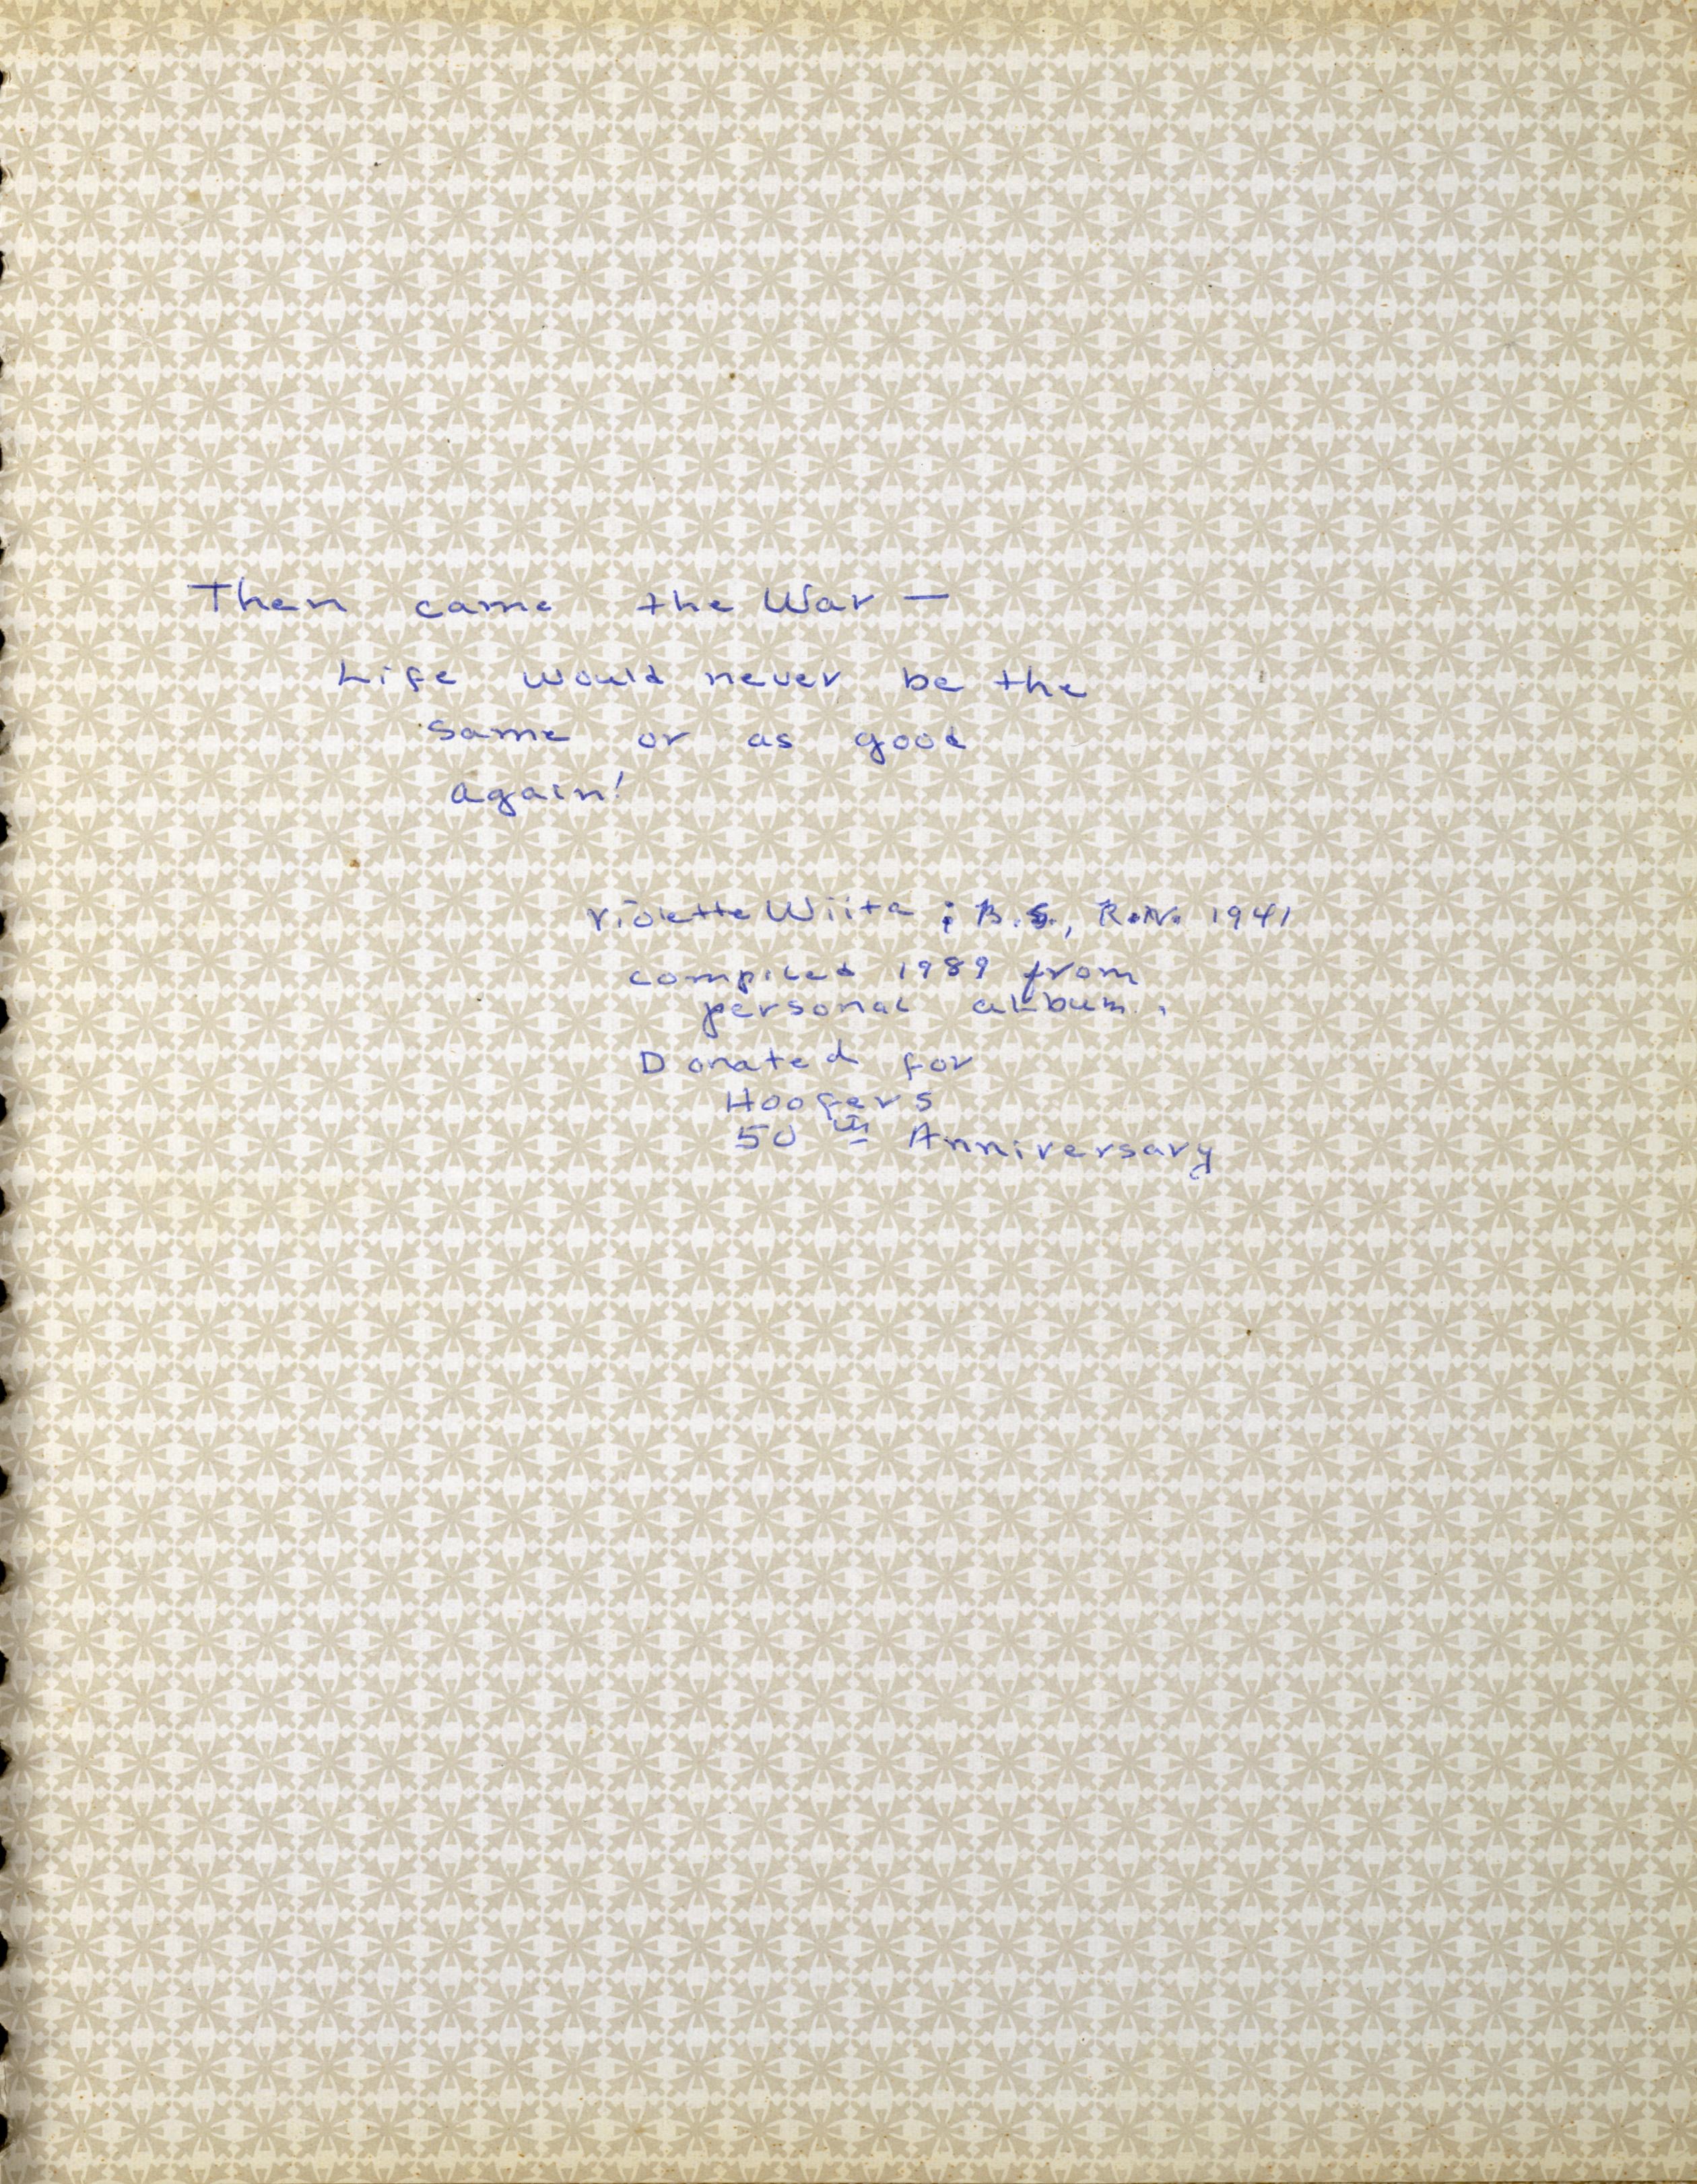 Then came the War —
Life would never be the
same or as good
again!
Violette Wiita ; B.S., R.N. 1941
compiled 1989 from
personal album.
Donated for
Hoofers
50th Anniversary